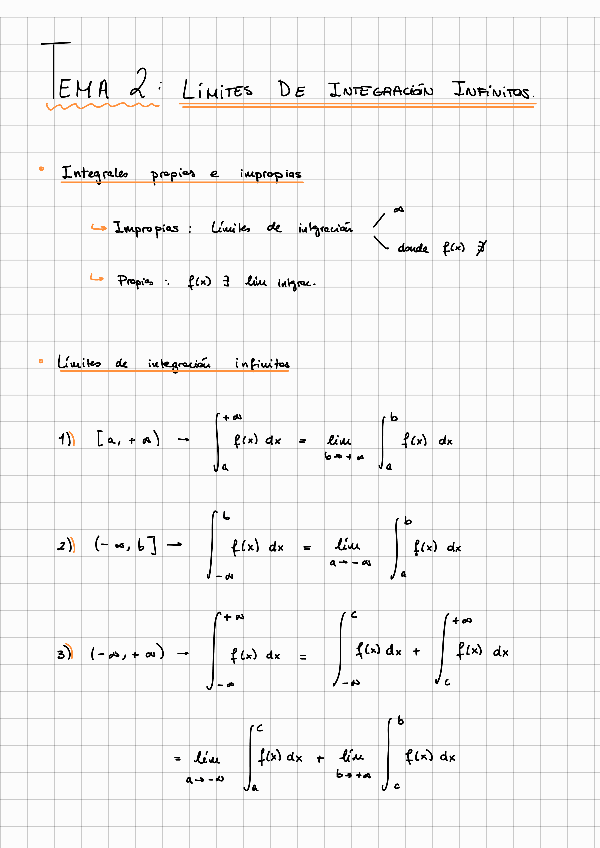 TEMA 2: LÍMITES DE INTEGRACIÓN INFINITOS.
• Integrales propias e impropias
↳ Impropias : Límites de integración < ∞
donde f(x) ∄
↳ Propias : f(x) ∃ lím integrac.
• Límites de integración infinitos
1) [a, +∞) → ∫_a^{+∞} f(x) dx = lím_{b→+∞} ∫_a^b f(x) dx
2) (-∞, b] → ∫_{-∞}^b f(x) dx = lím_{a→-∞} ∫_a^b f(x) dx
3) (-∞, +∞) → ∫_{-∞}^{+∞} f(x) dx = ∫_{-∞}^c f(x) dx + ∫_c^{+∞} f(x) dx
= lím_{a→-∞} ∫_a^c f(x) dx + lím_{b→+∞} ∫_c^b f(x) dx